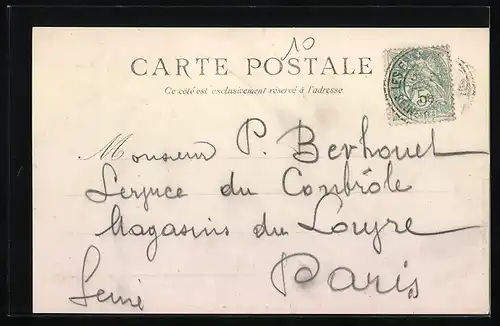 10
CARTE POSTALE
Ce côté est exclusivement réservé à l'adresse
Monsieur P. Berhouet
Service du Contrôle
Magasins du Louvre
Paris
Seine